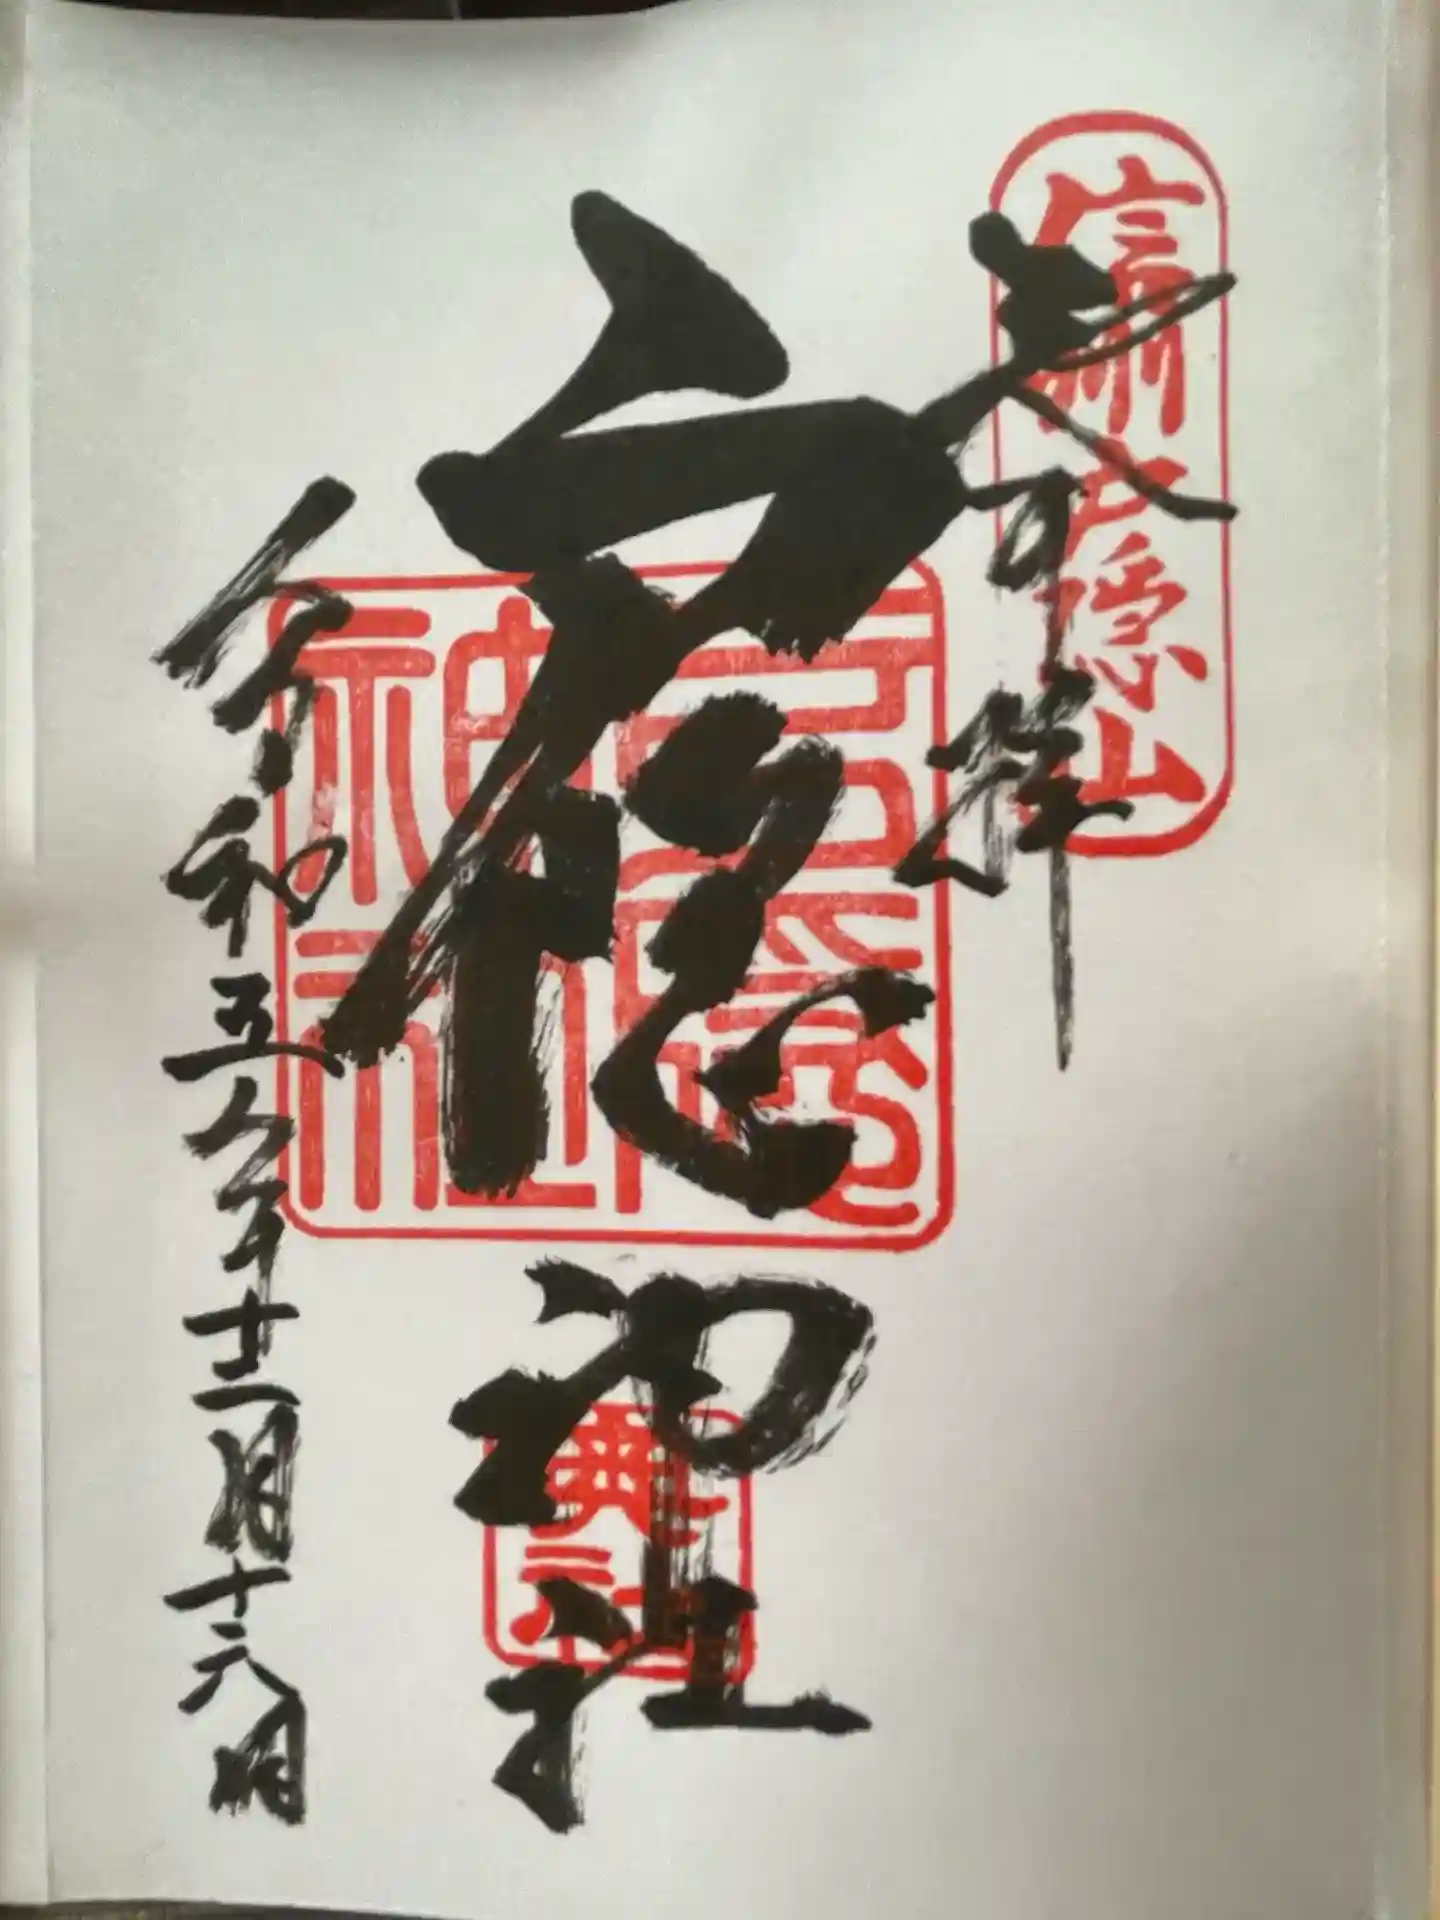 信州戸隠山
奉拝
戸隠神社
戸隠神社
奥社
令和五年十二月十六日